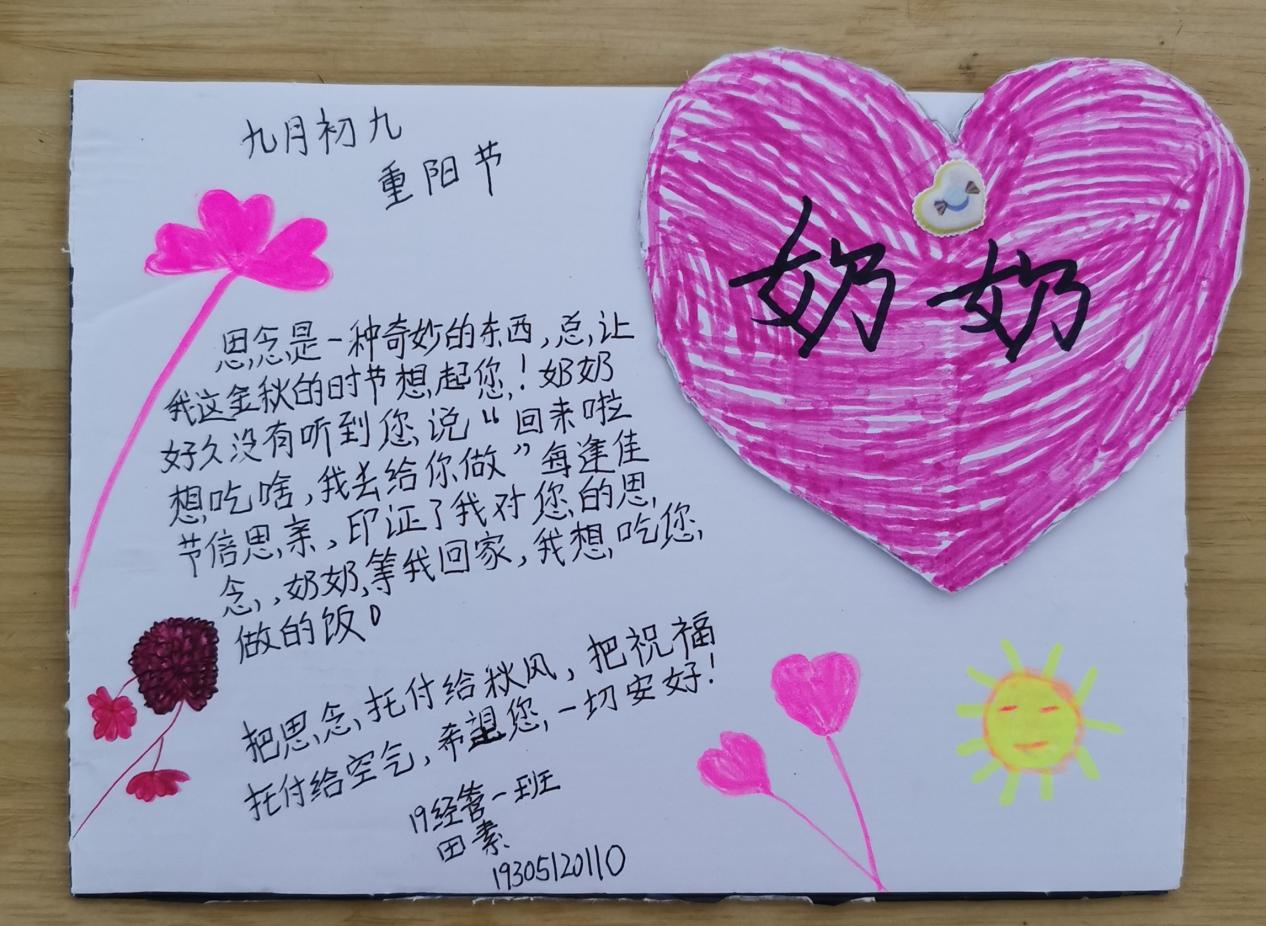 九月初九
重阳节
奶奶
思念是一种奇妙的东西，总让
我这金秋的时节想起您！奶奶
好久没有听到您说“回来啦
想吃啥，我去给你做”每逢佳
节倍思亲，印证了我对您的思
念，奶奶，等我回家，我想吃您
做的饭。
把思念托付给秋风，把祝福
托付给空气，希望您一切安好！
19经管一班
田素
19305120110